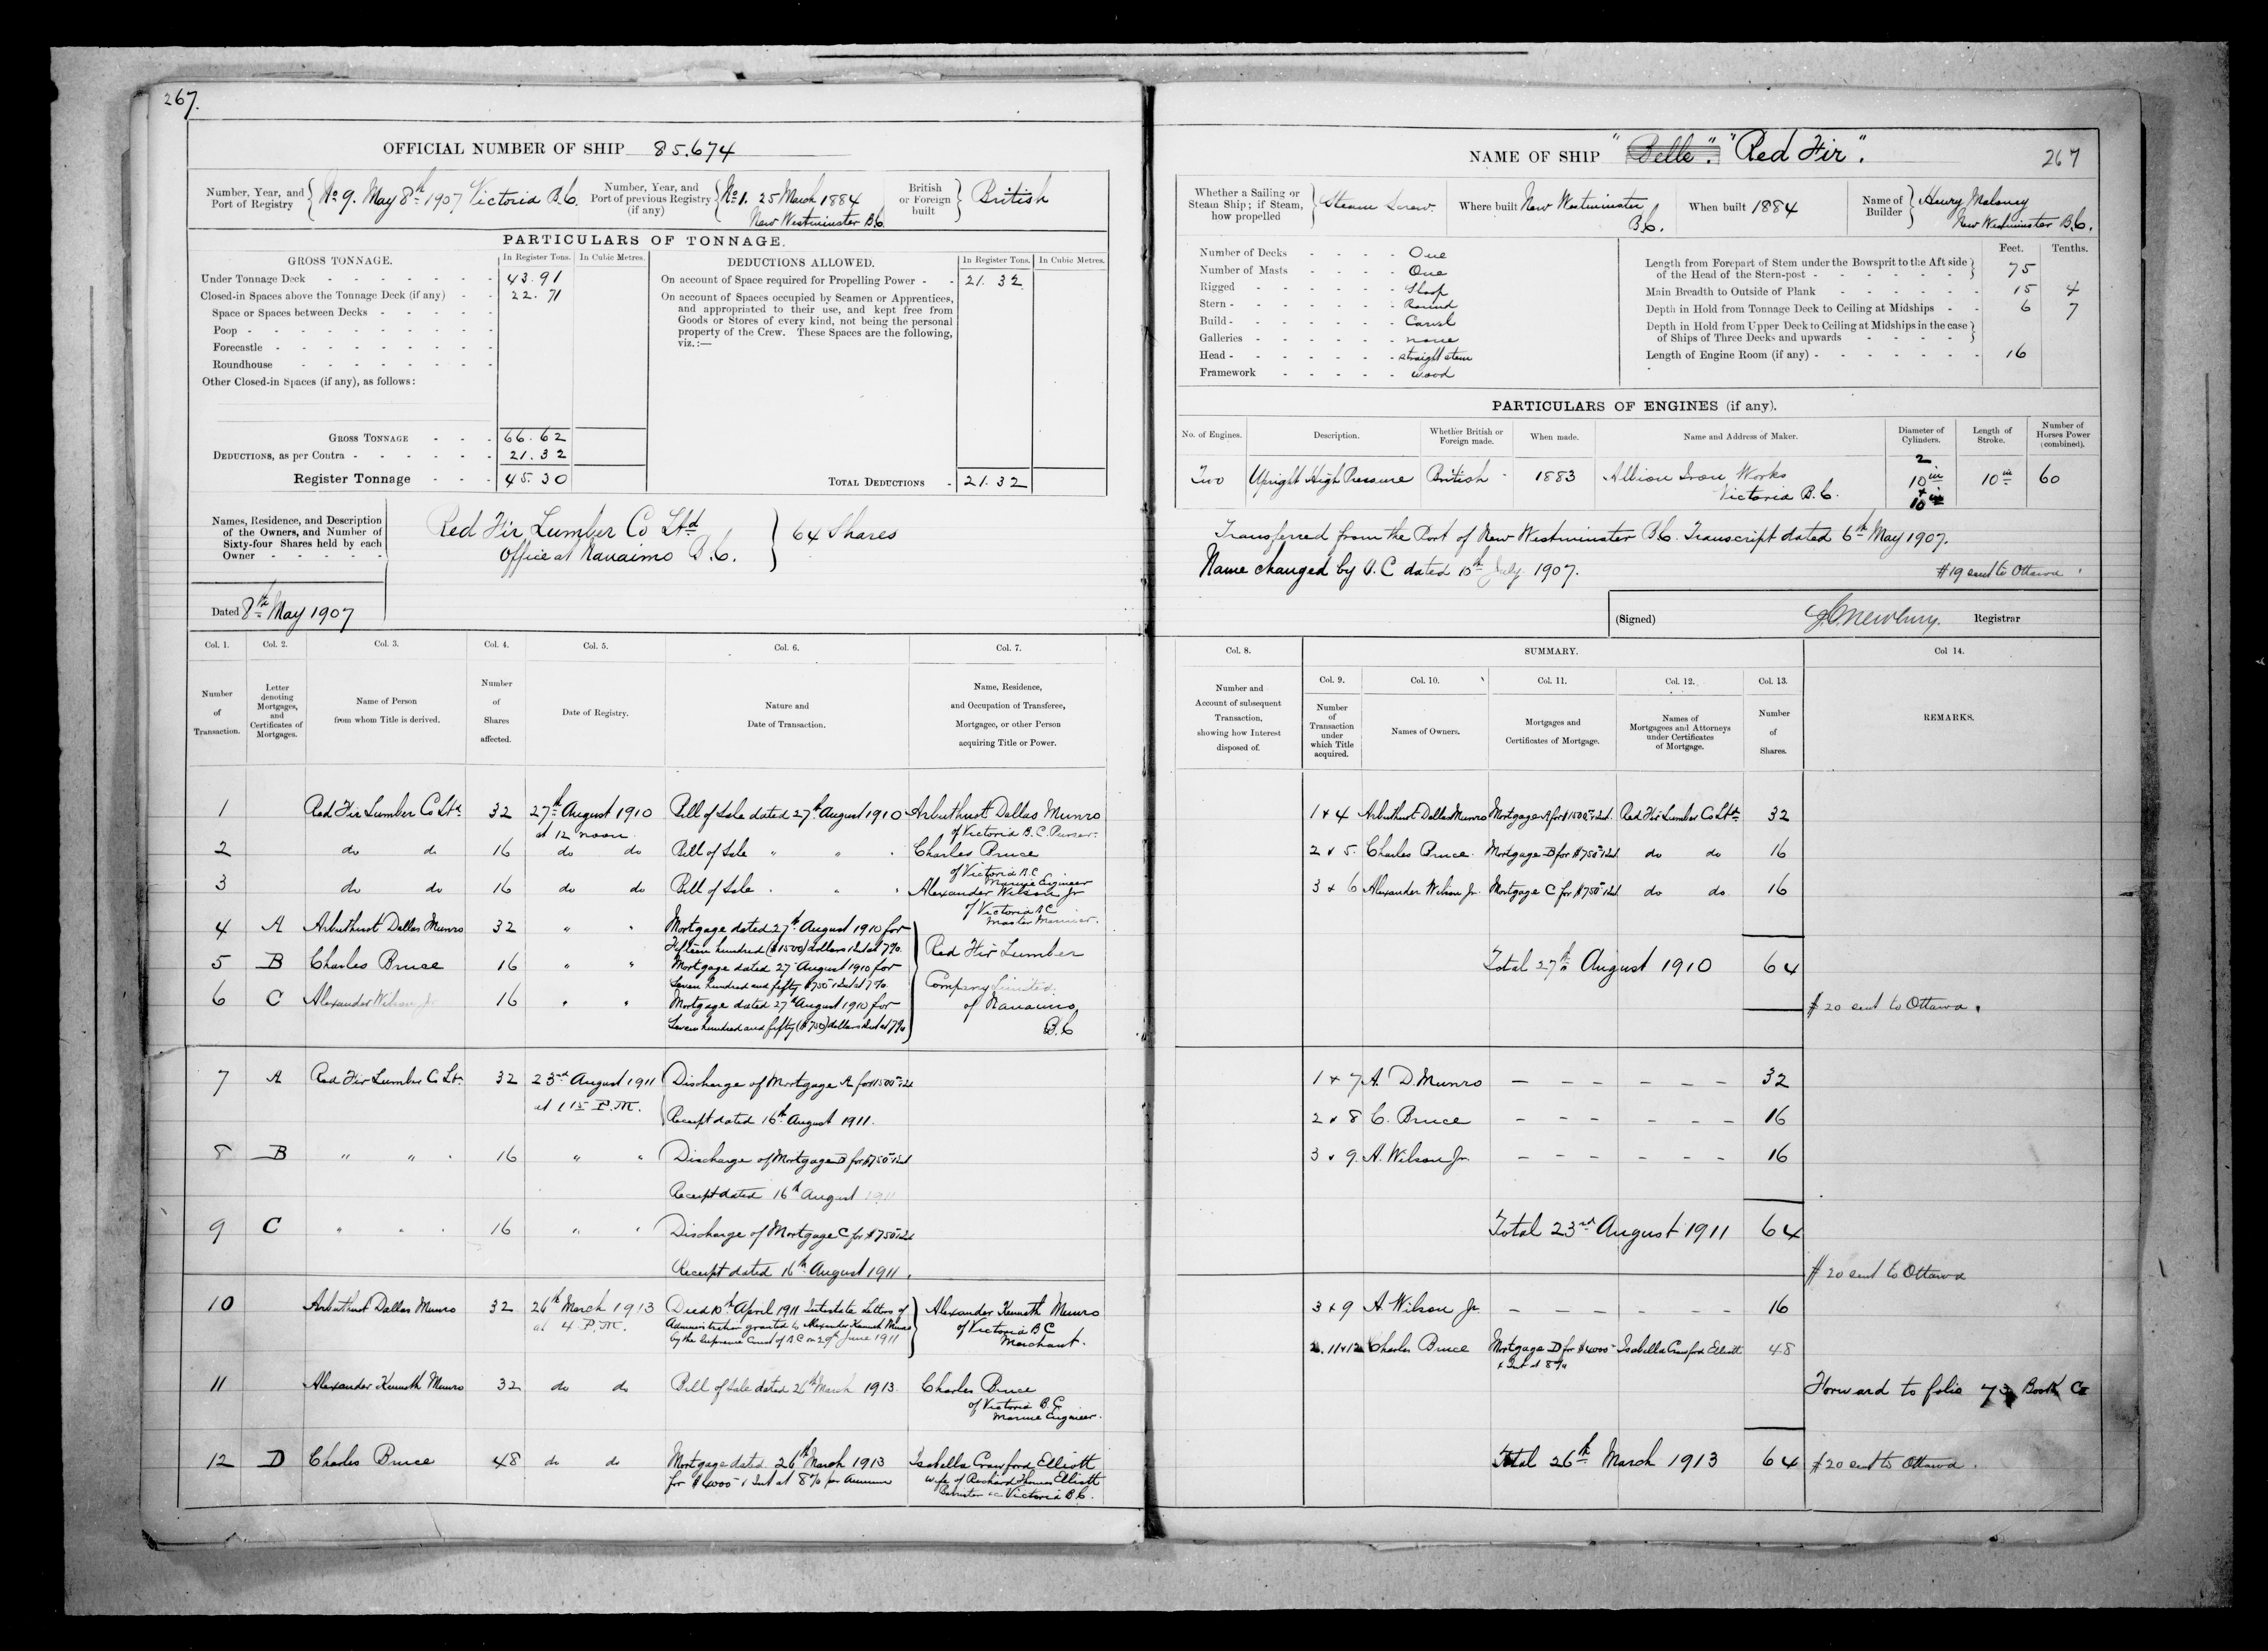 267.
OFFICIAL NUMBER OF SHIP 85.674
Number, Year, and Port of Registry { No 9. May 8th 1907 Victoria B.C.
Number, Year, and Port of previous Registry (if any) { No 1. 25 March 1884 New Westminster B.C.
British or Foreign built } British
PARTICULARS OF TONNAGE.
GROSS TONNAGE. In Register Tons. In Cubic Metres.
Under Tonnage Deck 43.91
Closed-in Spaces above the Tonnage Deck (if any) 22.71
Space or Spaces between Decks
Poop
Forecastle
Roundhouse
Other Closed-in Spaces (if any), as follows:
GROSS TONNAGE 66.62
DEDUCTIONS, as per Contra 21.32
Register Tonnage 45.30
DEDUCTIONS ALLOWED. In Register Tons. In Cubic Metres.
On account of Space required for Propelling Power 21.32
On account of Spaces occupied by Seamen or Apprentices,
and appropriated to their use, and kept free from
Goods or Stores of every kind, not being the personal
property of the Crew. These Spaces are the following,
viz.:—
TOTAL DEDUCTIONS 21.32
Names, Residence, and Description
of the Owners, and Number of
Sixty-four Shares held by each
Owner
Red Fir Lumber Co Ltd } 64 Shares
Office at Nanaimo B.C.
Dated 8th May 1907
Col. 1. Col. 2. Col. 3. Col. 4. Col. 5. Col. 6. Col. 7.
Number of Transaction.
Letter denoting Mortgages, and Certificates of Mortgages.
Name of Person from whom Title is derived.
Number of Shares affected.
Date of Registry.
Nature and Date of Transaction.
Name, Residence, and Occupation of Transferee, Mortgagee, or other Person acquiring Title or Power.
1 Red Fir Lumber Co Ltd 32 27th August 1910 Bill of Sale dated 27th August 1910 Arbuthnot Dallas Munro
at 12 noon. of Victoria B.C. Purser.
2 do do 16 do do Bill of Sale " " Charles Bruce
of Victoria B.C Marine Engineer
3 do do 16 do do Bill of Sale " " Alexander Wilson Jr
of Victoria B C Master Mariner.
4 A Arbuthnot Dallas Munro 32 " " Mortgage dated 27th August 1910 for
Fifteen hundred ($1500) dollars & Int at 7%.
5 B Charles Bruce 16 " " Mortgage dated 27 August 1910 for
Seven hundred and fifty $750 & Int at 7%.
6 C Alexander Wilson Jr 16 " " Mortgage dated 27th August 1910 for
Seven hundred and fifty ($750) dollars & Int at 7%
Red Fir Lumber
Company Limited
of Nanaimo
B.C
7 A Red Fir Lumber Co Ltd 32 23rd August 1911 Discharge of Mortgage A for $1500 & Int
at 1 15 P.M. Receipt dated 16th August 1911.
8 B " " 16 " " Discharge of Mortgage B for $750 & Int
Receipt dated 16th August 1911
9 C " " 16 " " Discharge of Mortgage C for $750 & Int
Receipt dated 16th August 1911.
10 Arbuthnot Dallas Munro 32 26th March 1913 Died 10th April 1911 Intestate Letters of Alexander Kenneth Munro
at 4 P.M. Administration granted to Alexander Kenneth Munro of Victoria B C
by the Supreme Court of B C on 29th June 1911 Merchant.
11 Alexander Kenneth Munro 32 do do Bill of Sale dated 26th March 1913. Charles Bruce
of Victoria B.C.
Marine Engineer.
12 D Charles Bruce 48 do do Mortgage dated 26th March 1913 Isabella Crawford Elliott
for $4000 & Int at 8% per Annum wife of Richard Thomas Elliott
Barrister &c Victoria B.C.
NAME OF SHIP "Belle". "Red Fir".
267
Whether a Sailing or Steam Ship; if Steam, how propelled } Steam Screw
Where built New Westminster B.C.
When built 1884
Name of Builder } Henry Maloney New Westminster B.C.
Number of Decks One
Number of Masts One
Rigged Sloop
Stern Round
Build Carvel
Galleries none
Head straight stem
Framework wood
Feet. Tenths.
Length from Forepart of Stem under the Bowsprit to the Aft side
of the Head of the Stern-post 75
Main Breadth to Outside of Plank 15 4
Depth in Hold from Tonnage Deck to Ceiling at Midships 6 7
Depth in Hold from Upper Deck to Ceiling at Midships in the case
of Ships of Three Decks and upwards
Length of Engine Room (if any) 16
PARTICULARS OF ENGINES (if any).
No. of Engines. Description. Whether British or Foreign made. When made. Name and Address of Maker. Diameter of Cylinders. Length of Stroke. Number of Horses Power (combined).
Two Upright High Pressure British 1883 Albion Iron Works Victoria B.C. 2 10in + 10in 10in 60
Transferred from the Port of New Westminster B.C. Transcript dated 6th May 1907.
Name changed by O.C dated 10th July 1907.
#19 sent to Ottawa
(Signed) J.C. Newbury. Registrar
Col. 8. SUMMARY. Col 14.
Number and Account of subsequent Transaction, showing how Interest disposed of.
Col. 9. Col. 10. Col. 11. Col. 12. Col. 13.
Number of Transaction under which Title acquired.
Names of Owners.
Mortgages and Certificates of Mortgage.
Names of Mortgagees and Attorneys under Certificates of Mortgage.
Number of Shares.
REMARKS.
1 & 4 Arbuthnot Dallas Munro Mortgage A for $1500 & Int. Red Fir Lumber Co Ltd 32
2 & 5. Charles Bruce. Mortgage B for $750 & Int do do 16
3 & 6 Alexander Wilson Jr. Mortgage C for $750 & Int do do. 16
Total 27th August 1910 64
# 20 sent to Ottawa.
1 & 7 A. D. Munro — — — — — — 32
2 & 8 C. Bruce — — — — — — 16
3 & 9. A. Wilson Jr. — — — — — — 16
Total 23rd August 1911 64
# 20 sent to Ottawa
3 & 9 A. Wilson Jr. — — — — — — 16
2. 11 & 12 Charles Bruce Mortgage D for $4000 Isabella Crawford Elliott 48
& Int at 8%
Forward to folio Book C
Total 26th March 1913 64
# 20 sent to Ottawa.